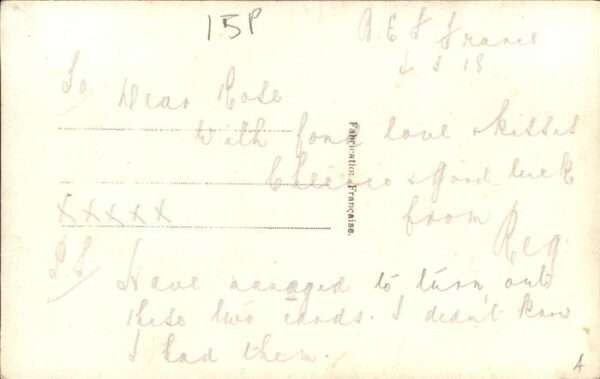 15P
B.E.F France
5 18
To Dear Rose
With fond love & kisses
Cheerio & good luck
from
Reg.
XXXXX
Fabrication Française.
P.S. Have managed to turn out
these two cards. I didn't know
I had them.
A